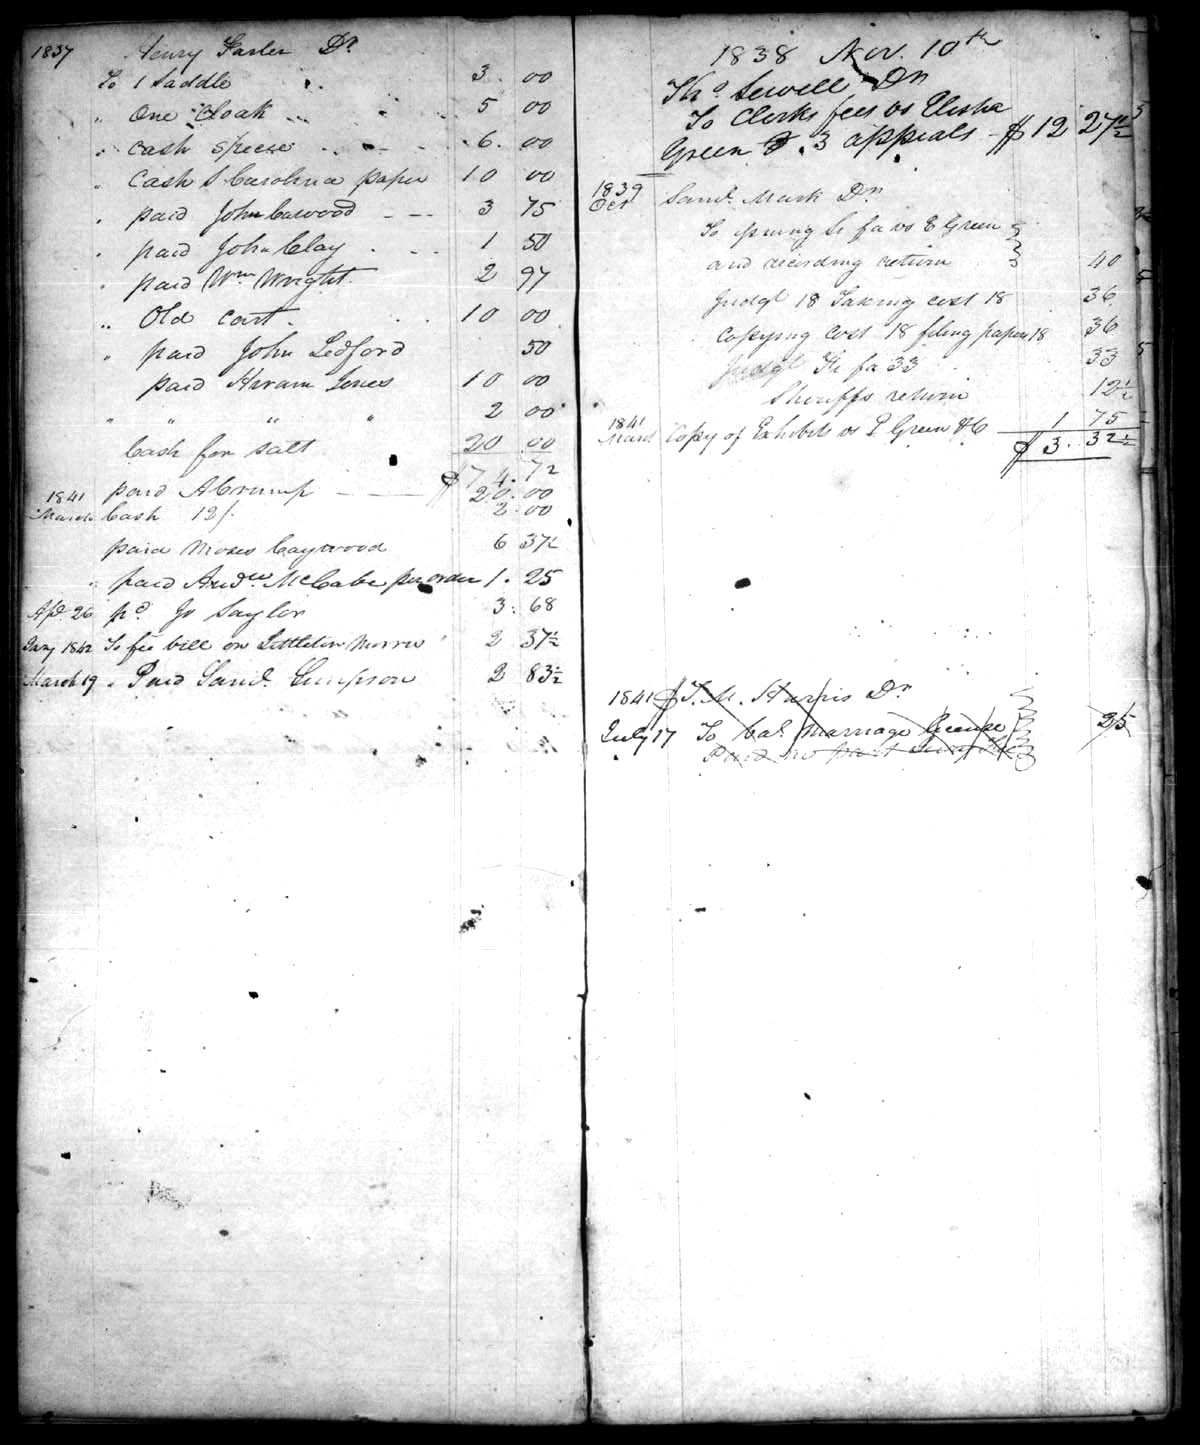 1837 Henry Farler Dr
To 1 Saddle 3 00
" One Cloak 5 00
" Cash Speese 6 00
" Cash S Carolina paper 10 00
" paid John Cawood 3 75
" paid John Clay 1 50
" paid Wm Wright 2 97
" Old cart 10 00
" paid John Ledford 50
paid Hiram Jones 10 00
" " " " 2 00
Cash for Salt 20 00
$74.72
paid A Crump 20.00
1841 March Cash 12/ 2.00
paid Moses Caywood 6 37½
" paid Andw McCabe per order 1.25
Apl 26 pd Jo Saylor 3.68
Jany 1842 To fee bill on Littleton Morris 2 37½
March 19 " Paid Saml Simpson 2 83½
1838 Nov. 10th
Tho Sewell Dr
To Clerks fees vs Elisha
Green & 3 appeals $12 27½
1839 Oct Saml Mark Dr
To Issuing Sc fa vs E Green
and recording return 40
Judgt 18 Taking cost 18 36
Copying cost 18 filing papers 18 36
Judgt Fi fa 33 33
Sheriffs return 12½
1841 March Copy of Exhibits vs E Green &C 1 75
$3.32½
1841 T. M. Harris Dr
July 17 To Bal. Marriage License 25
Paid